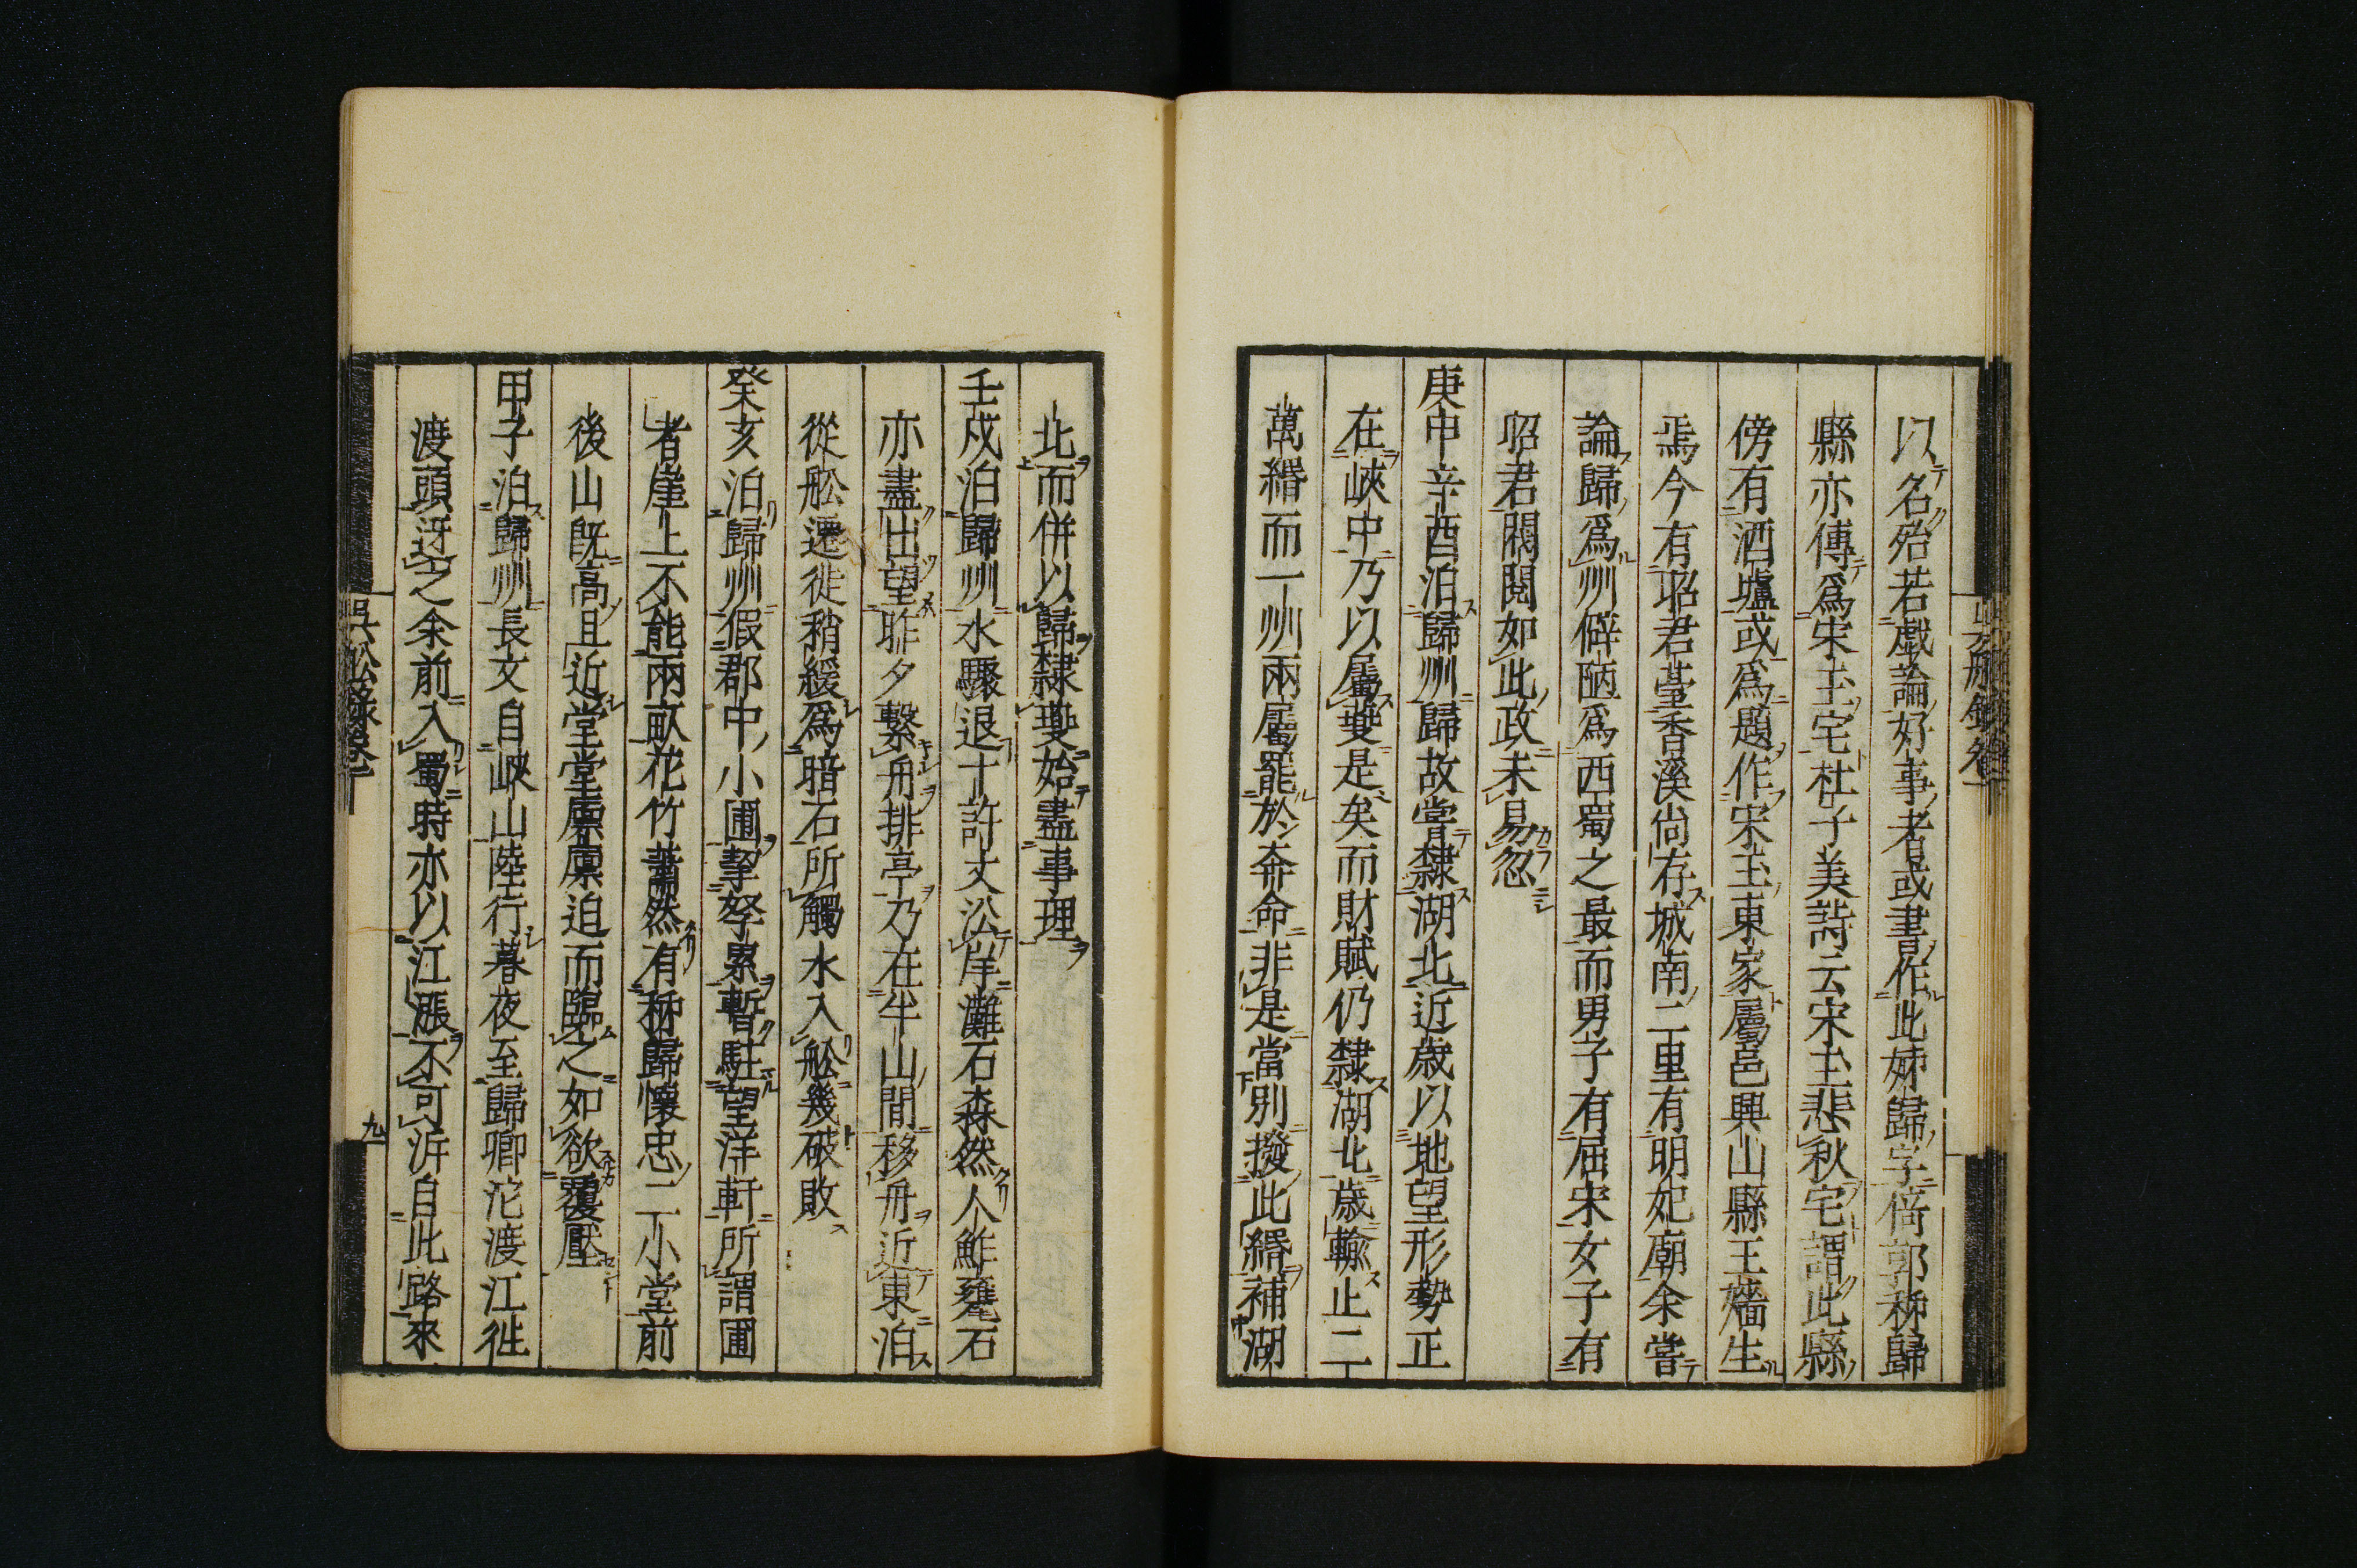 以名殆若戯論好事者或書作此姊歸字倚郭秭歸
縣亦傳爲宋玉宅杜子美詩云宋玉悲秋宅謂此縣
傍有酒壚或爲題作宋玉東家屬邑興山縣王嬙生
焉今有昭君臺香溪尚存城南二里有明妃廟余嘗
論歸爲州僻陋爲西蜀之最而男子有屈宋女子有
昭君閥閲如此政未易忽
庚申辛酉泊歸州歸故嘗隸湖北近歲以地望形勢正
在峽中乃以屬夔是矣而財賦仍隸湖北歲輸止二
萬緡而一州兩屬罷於奔命非是當別撥此緡補湖
北而併以歸隸夔始盡事理
壬戌泊歸州水驟退十許丈沿岸灘石森然人鮓甕石
亦盡出望昨夕繋舟排亭乃在半山間移舟近東泊
從舩遷徙稍緩爲暗石所觸水入舩幾破敗
癸亥泊歸州假郡中小圃挈孥累暫駐望洋軒所謂圃
者崖上不能兩畝花竹蕭然有秭歸懷忠二小堂前
後山既高且近堂堂廩廩迫而臨之如欲覆壓
甲子泊歸州長文自峽山陸行暮夜至歸卿沱渡江徃
渡頭迓之余前入蜀時亦以江漲不可泝自此路來
呉舩錄卷下
九